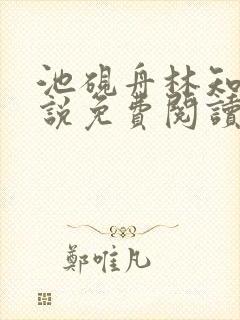 池硯舟林知
說免費閱讀
鄭唯凡